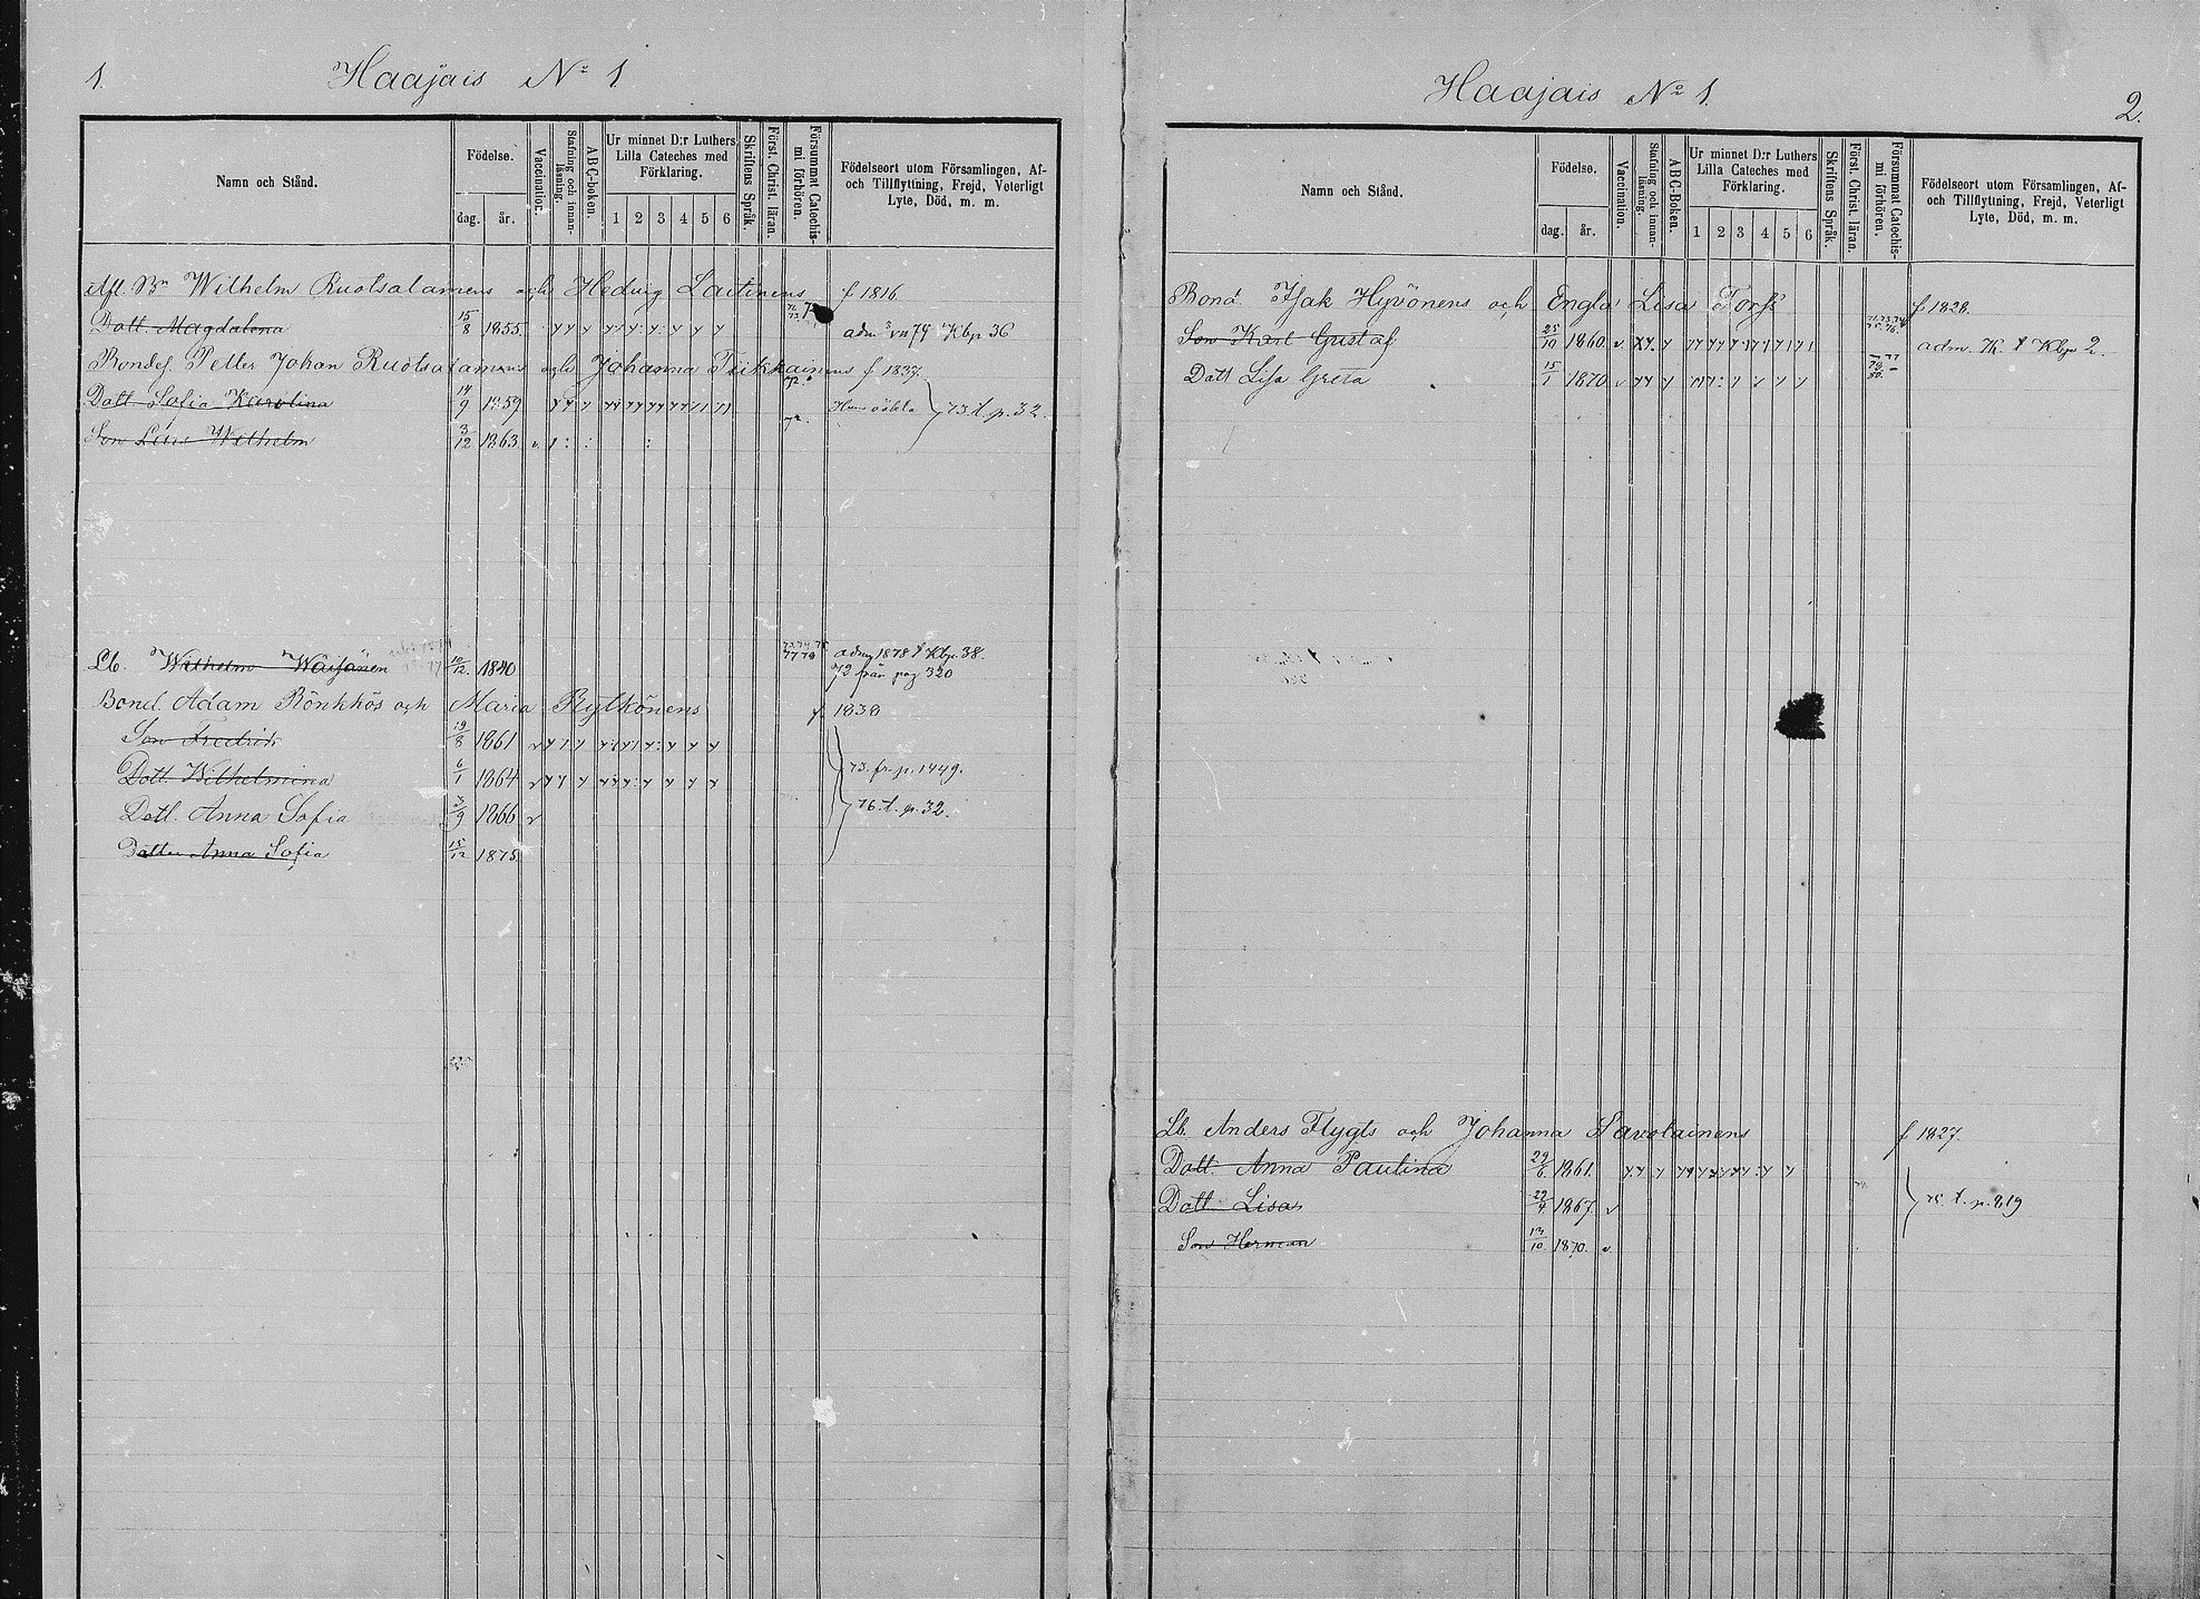 1.
Haajais No 1.
Namn och Stånd.
Födelse.
dag.
år.
Vaccination.
Stafning och innan-läsning.
ABC-boken.
Ur minnet D:r Luthers Lilla Cateches med Förklaring.
1 2 3 4 5 6
Skriftens Språk.
Först. Christ. läran.
Försummat Catechis-mi förhören.
Födelseort utom Församlingen, Af- och Tillflyttning, Frejd, Veterligt Lyte, Död, m. m.
Afl. Bn Wilhelm Ruotsalainens och Hedvig Laitinens f 1816.
Dott. Magdalena 15/8 1855. 74 Kbp 36
Bondes. Petter Johan Ruotsalainens och Johanna Tiikkainens f 1837.
Dott. Sofia Karolina 14/9 1859 72. 73. t. p. 32.
Son Wilhelm 3/12 1863. v. 72.
Lb. Wilhelm Wäisänen 10/12. 1840 adm 1878 Kbp. 38.
72 från pag 320
Bond. Adam Rönkkös och Maria Rytkönens f. 1838
Son Fredrik 19/8 1861 v
Dott. Wilhelmina 6/1 1864 v 73. fr. p. 1449.
Dott. Anna Sofia 3/9 1866 v 76. t. p. 32.
Dotter Anna Sofia 15/12 1875.
Haajais No 1.
2.
Namn och Stånd.
Födelse.
dag.
år.
Vaccination.
Stafning och innan-läsning.
ABC-Boken.
Ur minnet D:r Luthers Lilla Cateches med Förklaring.
1 2 3 4 5 6
Skriftens Språk.
Först. Christ. läran.
Försummat Catechis-mi förhören.
Födelseort utom Församlingen, Af- och Tillflyttning, Frejd, Veterligt Lyte, Död, m. m.
Bond. Isak Hyvönens och Engla Lisa Torss f 1828.
Son Karl Gustaf 25/10 1860. v. adm. Kbp 2.
Dott Lisa Greta 15/1 1870 v
Lb. Anders Flygts och Johanna Savolainens f 1827.
Dott Anna Paulina 29/6. 1861.
Dott. Lisa 1867. v 75. t. p. 819
Son Herman 13/10. 1870. v.